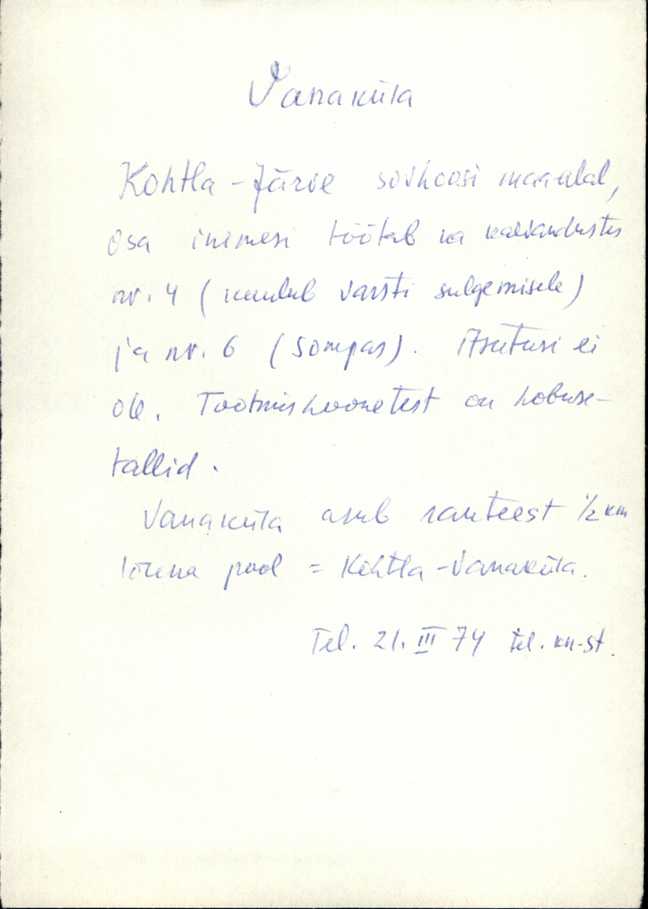 Vanaküla
Kohtla-Järve sovhoosi maaalal,
osa inimesi töötab ka kaevandustes
nr. 4 (kuulub varsti sulgemisele)
ja nr. 6 (Sompas). Asutusi ei
ole. Tootmishoonetest on hobuse-
tallid.
Vanaküla asub raudteest 1/2 km
lõuna pool = Kohtla-Vanaküla.
Tel. 21. III 74 tel. kn-st.